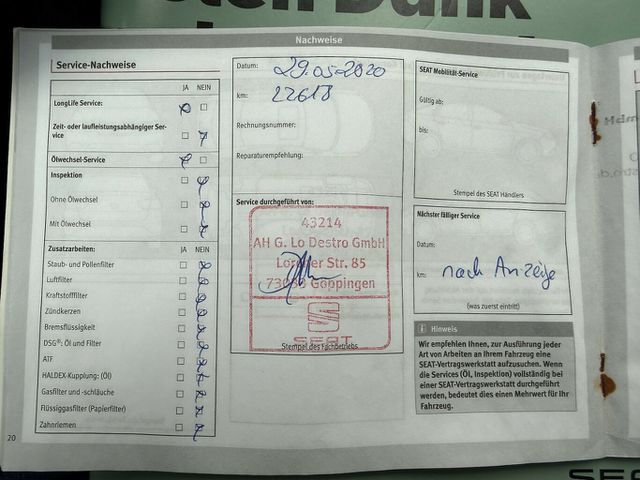 Nachweise
Service-Nachweise
JA NEIN
LongLife Service:
Zeit- oder laufleistungsabhängiger Ser-
vice
Ölwechsel-Service
Inspektion
Ohne Ölwechsel
Mit Ölwechsel
Zusatzarbeiten:
JA NEIN
Staub- und Pollenfilter
Luftfilter
Kraftstofffilter
Zündkerzen
Bremsflüssigkeit
DSG®: Öl und Filter
ATF
HALDEX-Kupplung: (Öl)
Gasfilter und -schläuche
Flüssiggasfilter (Papierfilter)
Zahnriemen
20
Datum: 29.05.2020
km: 22618
Rechnungsnummer:
Reparaturempfehlung:
Service durchgeführt von:
43214
AH G. Lo Destro GmbH
Lorcher Str. 85
Göppingen
SEAT
Stempel des Fachbetriebs
SEAT Mobilität-Service
Gültig ab:
bis:
Stempel des SEAT Händlers
Nächster fälliger Service
Datum:
km: nach Anzeige
(was zuerst eintritt)
i Hinweis
Wir empfehlen Ihnen, zur Ausführung jeder
Art von Arbeiten an Ihrem Fahrzeug eine
SEAT-Vertragswerkstatt aufzusuchen. Wenn
die Services (Öl, Inspektion) vollständig bei
einer SEAT-Vertragswerkstatt durchgeführt
werden, bedeutet dies einen Mehrwert für Ihr
Fahrzeug.